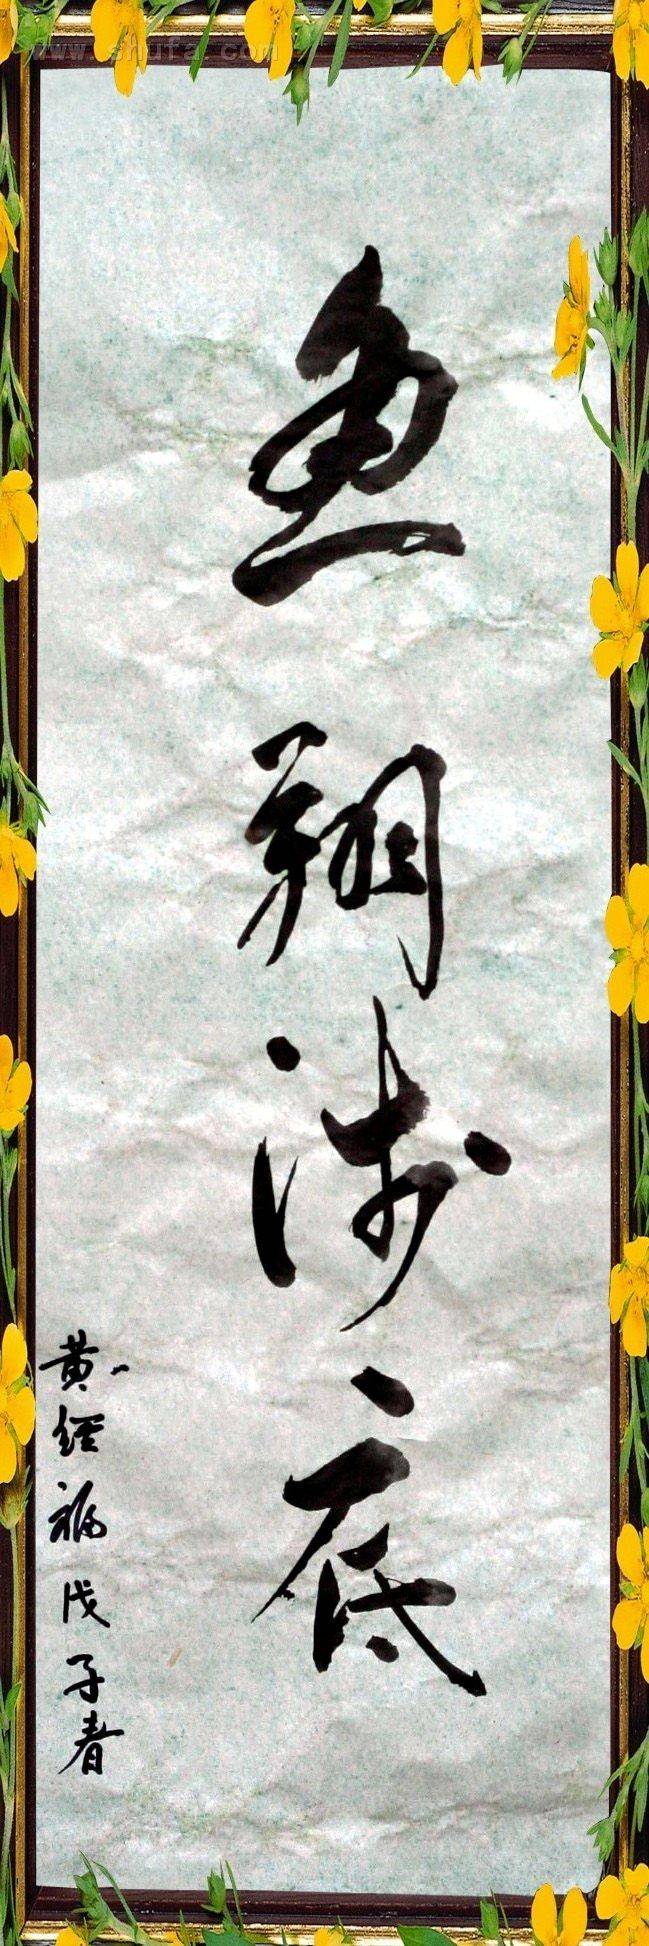 鱼翔浅底
黄经福戊子春
www.shufa.com